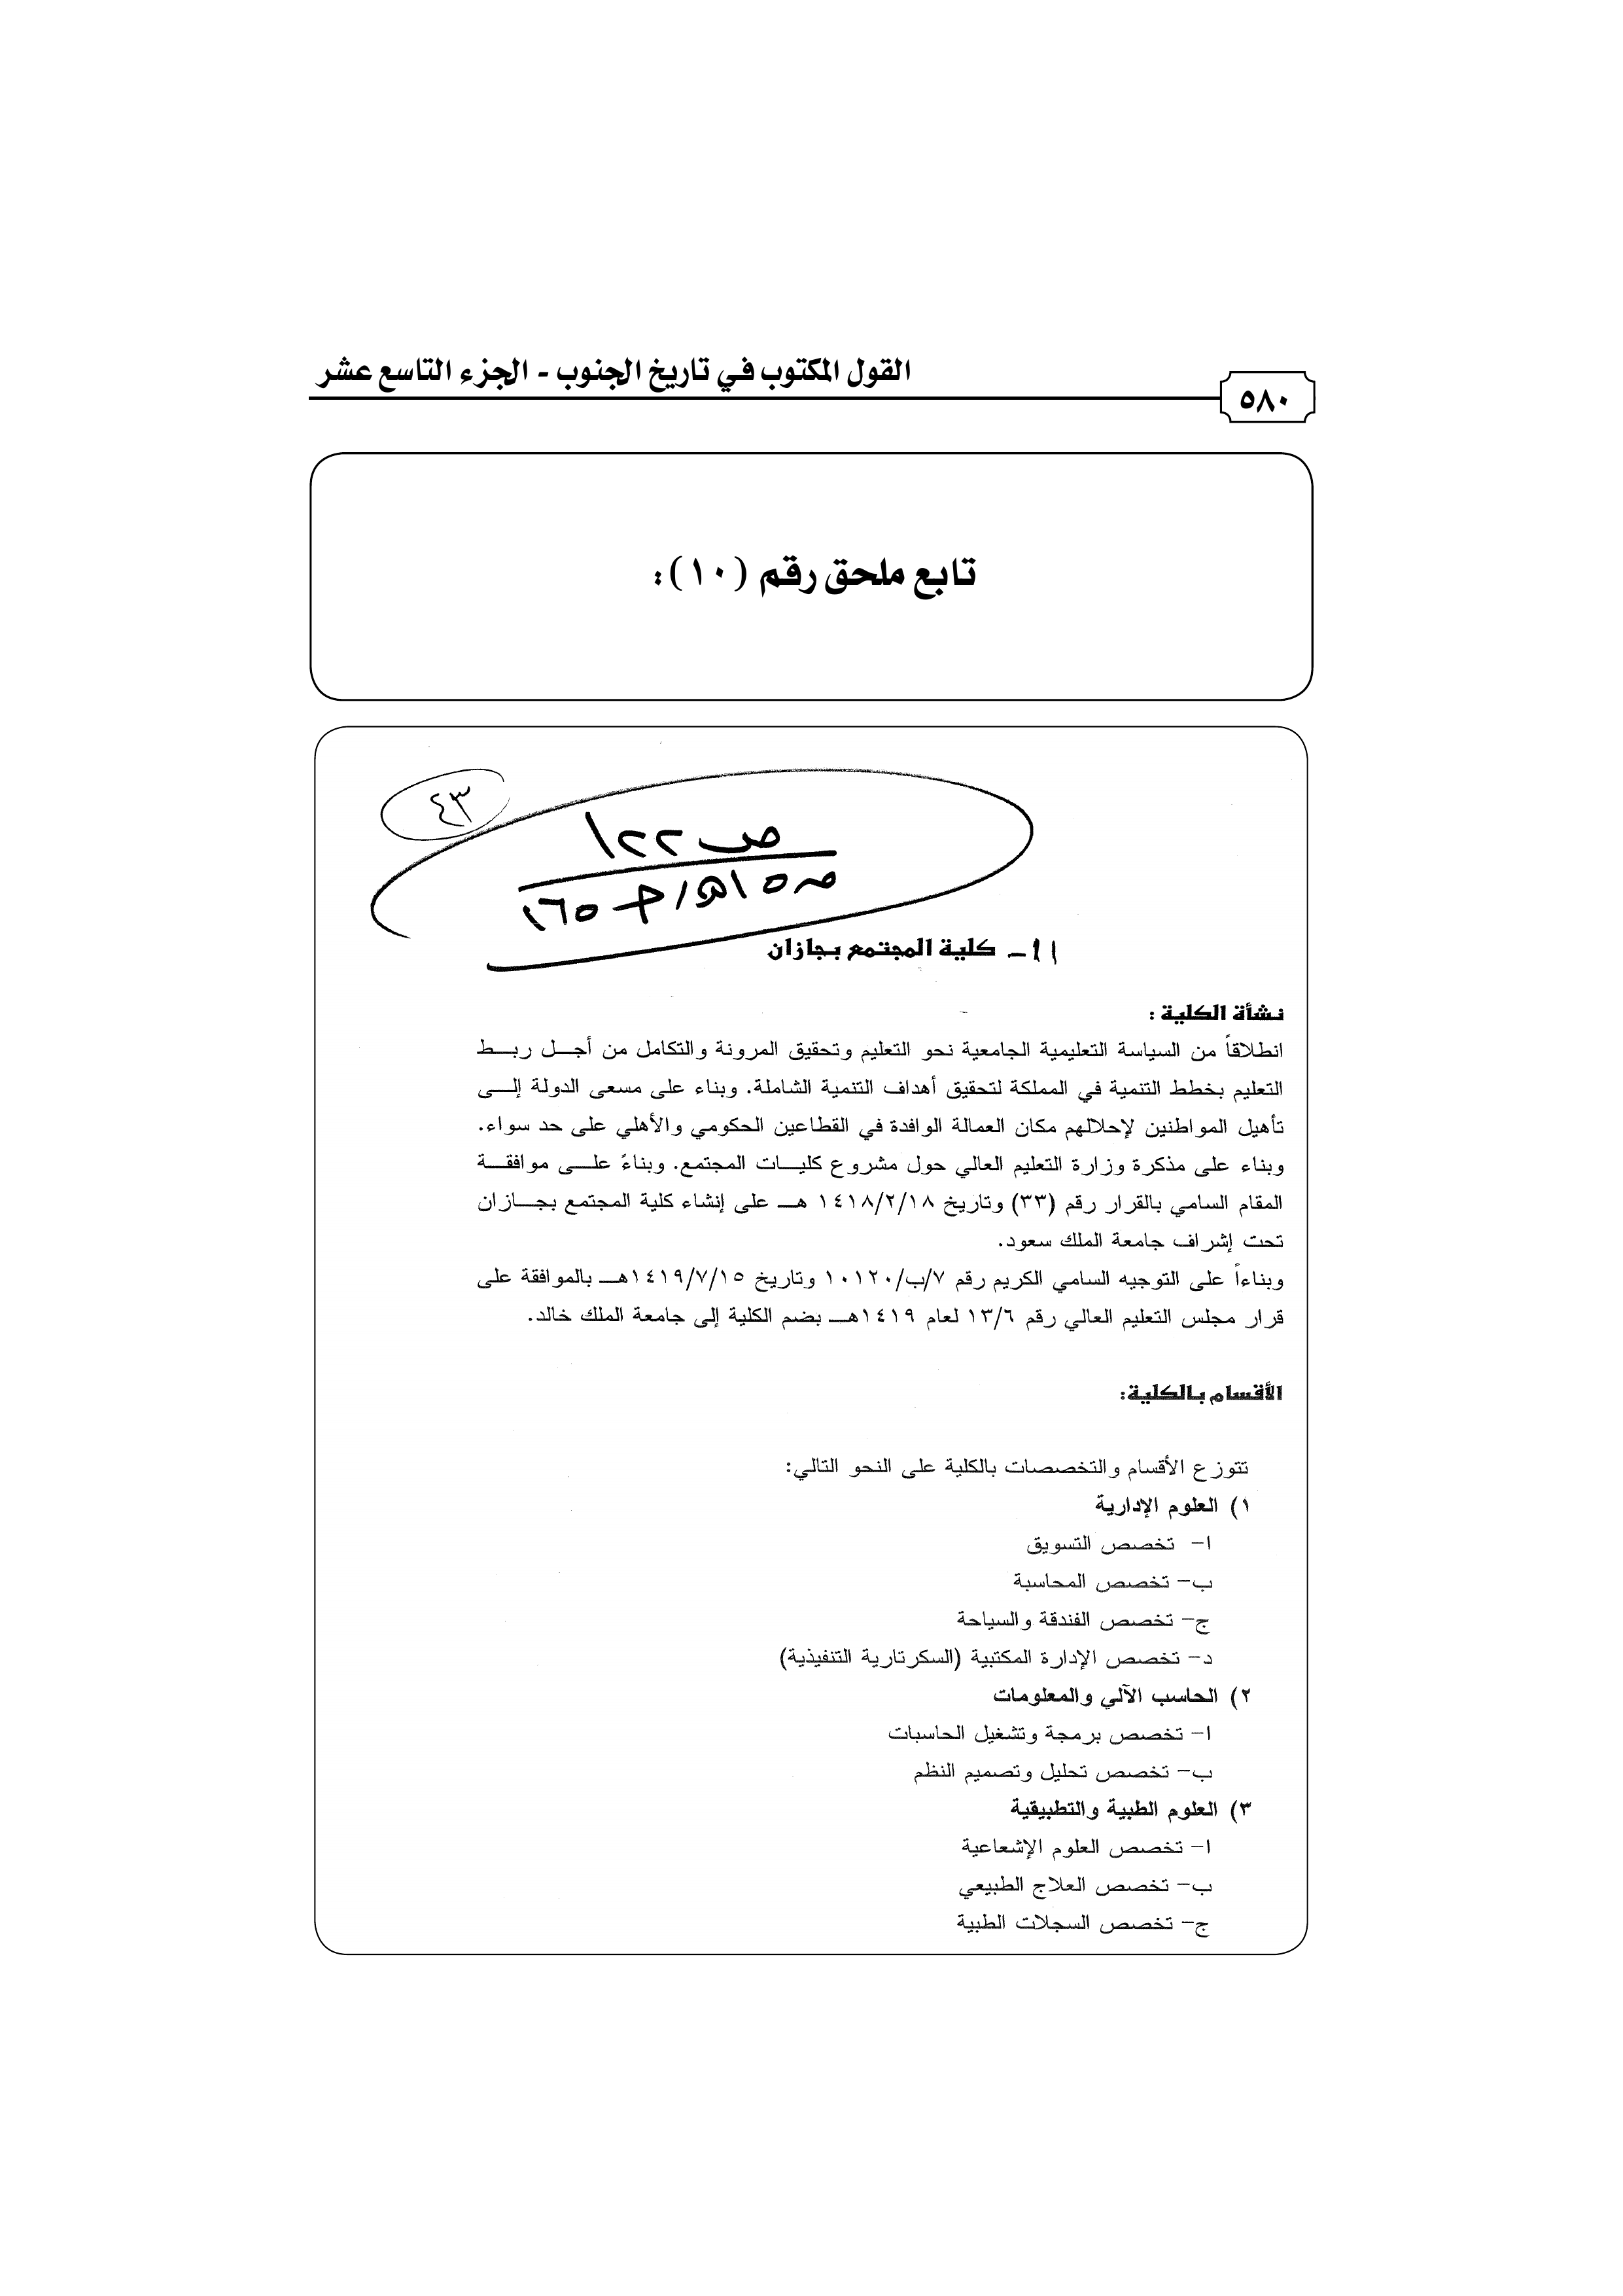 القول المكتوب في تاريخ الجنوب - الجزء التاسع عشر
٥٨٠
تابع ملحق رقم (١٠):
٤٣
ص ١٢٢
١١- كلية المجتمع بجازان
نشأة الكلية :
انطلاقاً من السياسة التعليمية الجامعية نحو التعليم وتحقيق المرونة والتكامل من أجل ربط
التعليم بخطط التنمية في المملكة لتحقيق أهداف التنمية الشاملة. وبناء على مسعى الدولة إلى
تأهيل المواطنين لإحلالهم مكان العمالة الوافدة في القطاعين الحكومي والأهلي على حد سواء.
وبناء على مذكرة وزارة التعليم العالي حول مشروع كليات المجتمع. وبناءً على موافقة
المقام السامي بالقرار رقم (٣٣) وتاريخ ١٤١٨/٢/١٨ هـ على إنشاء كلية المجتمع بجازان
تحت إشراف جامعة الملك سعود.
وبناءاً على التوجيه السامي الكريم رقم ٧/ب/١٠١٢٠ وتاريخ ١٤١٩/٧/١٥هـ بالموافقة على
قرار مجلس التعليم العالي رقم ١٣/٦ لعام ١٤١٩هـ بضم الكلية إلى جامعة الملك خالد.
الأقسام بالكلية:
تتوزع الأقسام والتخصصات بالكلية على النحو التالي:
١) العلوم الإدارية
ا- تخصص التسويق
ب- تخصص المحاسبة
ج- تخصص الفندقة والسياحة
د- تخصص الإدارة المكتبية (السكرتارية التنفيذية)
٢) الحاسب الآلي والمعلومات
ا- تخصص برمجة وتشغيل الحاسبات
ب- تخصص تحليل وتصميم النظم
٣) العلوم الطبية والتطبيقية
ا- تخصص العلوم الإشعاعية
ب- تخصص العلاج الطبيعي
ج- تخصص السجلات الطبية